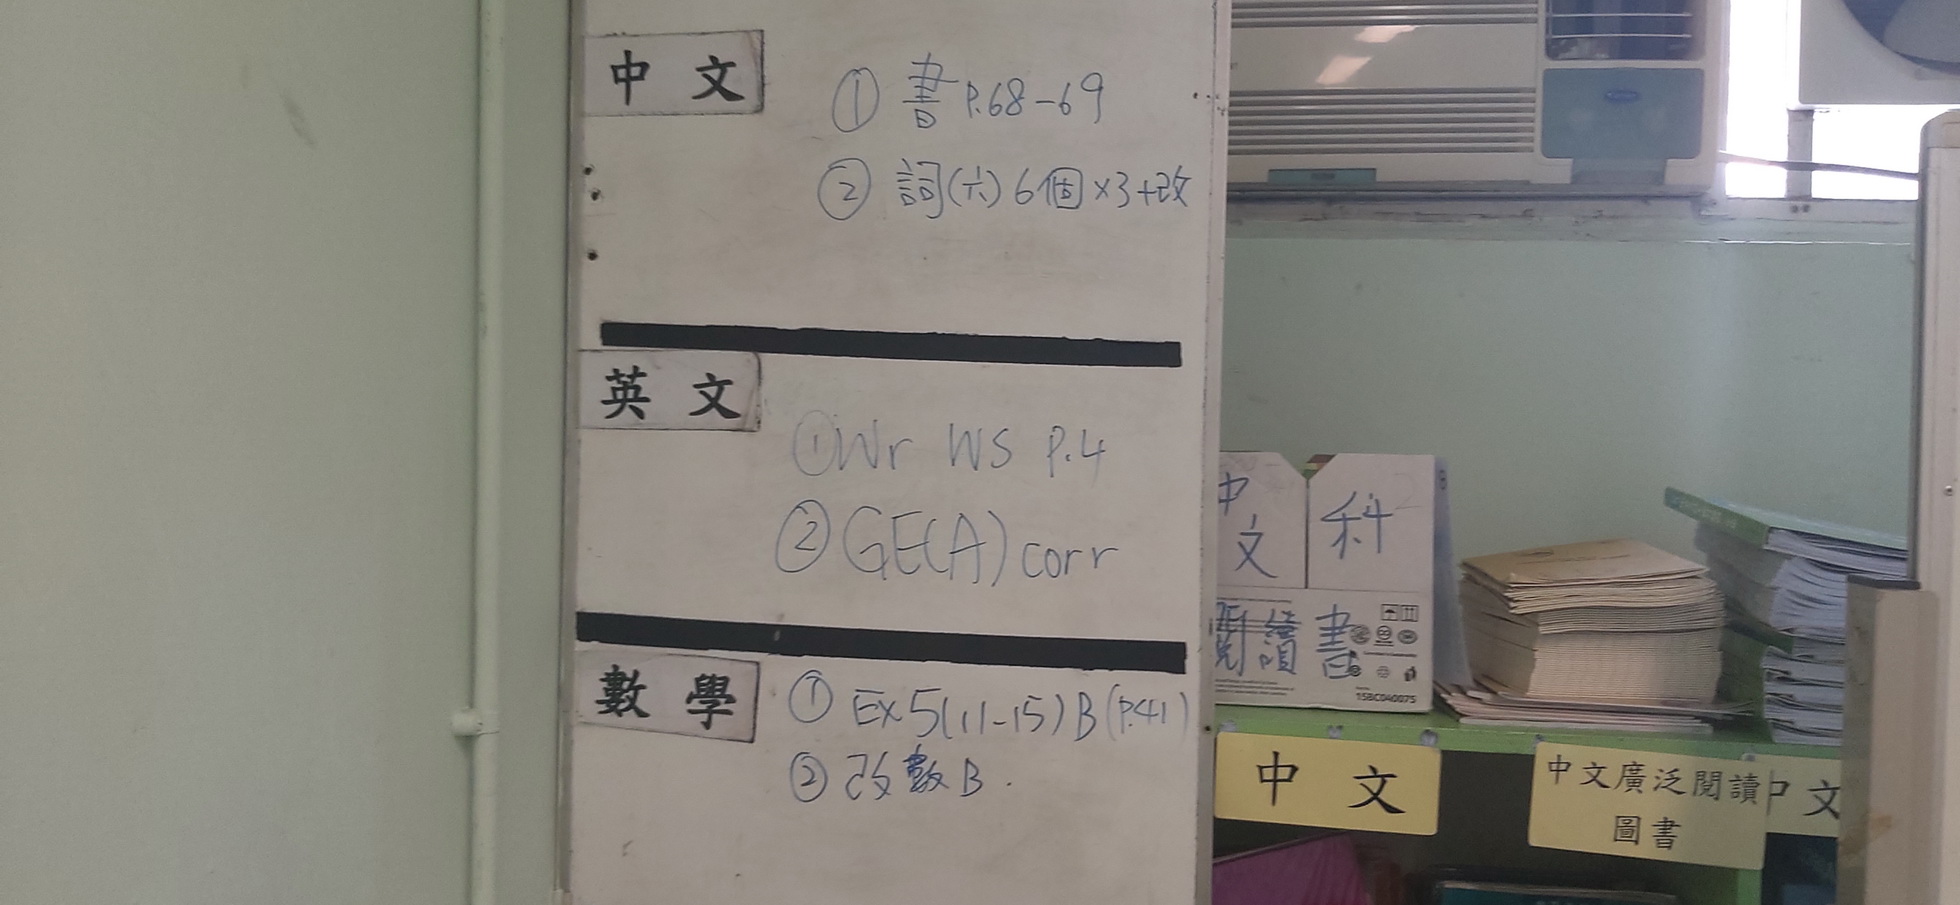 中文
① 書 P.68-69
② 詞(六) 6個×3+改
英文
① Wr WS P.4
② GE(A) corr
數學
① Ex 5(11-15) B (P.41)
② 改數B.
中文
科
閱讀書
15BC040075
中文
中文廣泛閱讀
圖書
中文